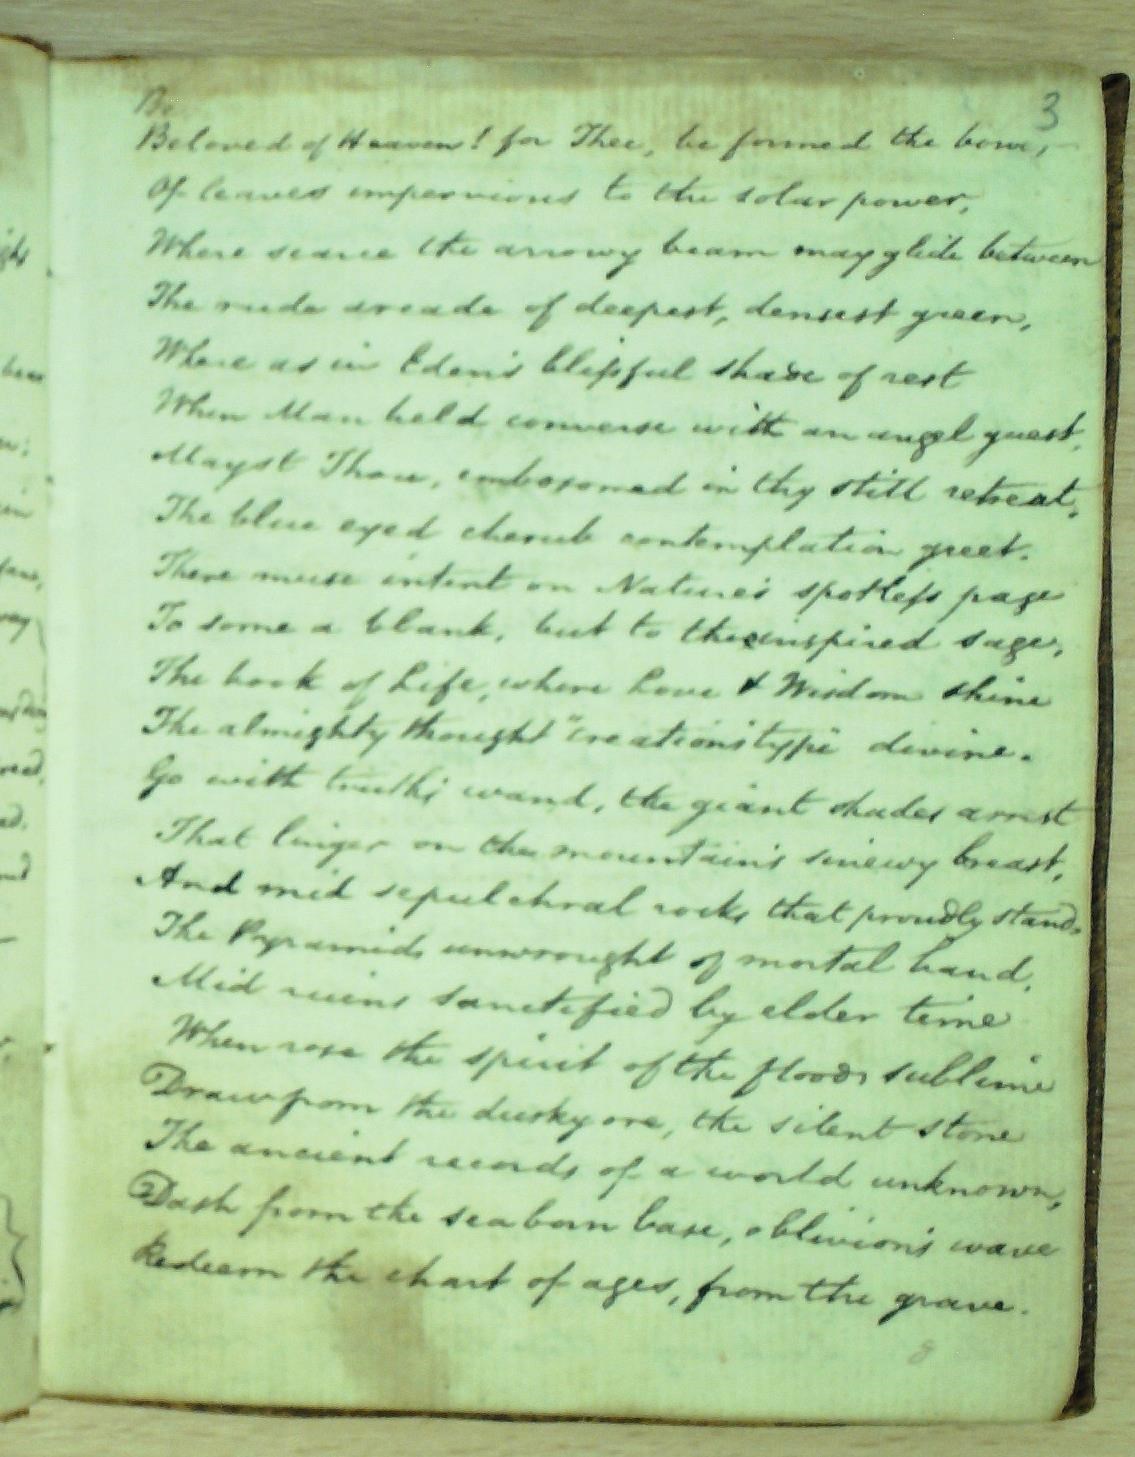 3
Be
Beloved of Heaven! for Thee, be formed the bower,
Of leaves impervious to the solar power,
Where scarce the arrowy beam may glide between
The rude arcade of deepest, densest green,
Where as in Eden's blissful shade of rest
When Man held converse with an angel guest,
Mayst Thou, embosomed in thy still retreat,
The blue eyed cherub contemplation greet.
There muse intent on Nature's spotless page
To some a blank, but to the inspired sage,
The book of Life, where Love & Wisdom shine
The almighty thought "creation's type divine.
Go with truth's wand, the giant shades arrest
That linger on the mountain's sinewy breast,
And mid sepulchral rocks that proudly stand,
The Pyramids unwrought of mortal hand,
Mid ruins sanctified by elder time
When rose the spirit of the floods sublime
Draw from the dusky ore, the silent stone
The ancient records of a world unknown,
Dash from the sea born base, oblivion's wave
Redeem the chart of ages, from the grave.